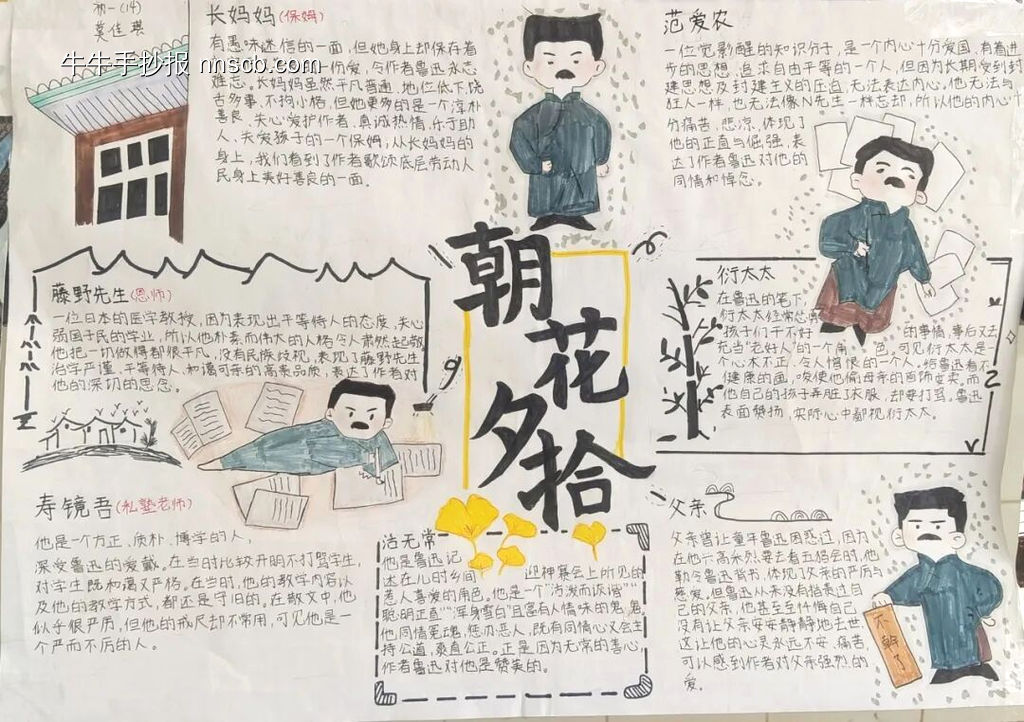 初一(14)
莫佳琪
牛牛手抄报 nnscb.com
长妈妈(保姆)
有愚昧迷信的一面，但她身上却保存着
一份爱，令作者鲁迅永志
难忘。长妈妈虽然平凡普通，地位低下，饶
舌多事、不拘小格，但她更多的是一个淳朴
善良、关心爱护作者、真诚热情、乐于助
人、关爱孩子的一个保姆；从长妈妈的
身上，我们看到了作者歌颂底层劳动人
民身上美好善良的一面。
范爱农
一位觉醒的知识分子，是一个内心十分爱国，有着进
步的思想、追求自由平等的一个人，但因为长期受到封
建思想及封建主义的压迫，无法表达内心。他无法与
狂人一样，也无法像N先生一样忘却，所以他的内心十
分痛苦、悲凉，体现了
他的正直与倔强，表
达了作者鲁迅对他的
同情和悼念。
朝花夕拾
藤野先生(恩师)
一位日本的医学教授，因为表现出平等待人的态度，关心
弱国子民的学业，所以他朴素而伟大的人格令人肃然起敬
他把一切做得都很平凡，没有民族歧视，表现了藤野先生
治学严谨、平等待人、和蔼可亲的高贵品质，表达了作者对
他的深切的思念。
衍太太
在鲁迅的笔下，
衍太太经常怂恿
孩子们干不好的事情，事后又去
充当“老好人”的一个角色，可见衍太太是一
个心术不正、令人憎恨的一个人。给鲁迅看不
健康的画，唆使他偷母亲的首饰变卖，而
他自己的孩子弄脏了衣服，却要打骂。鲁迅
表面赞扬，实际心中鄙视衍太太。
寿镜吾(私塾老师)
他是一个方正、质朴、博学的人，
深受鲁迅的爱戴。在当时比较开明不打骂学生，
对学生既和蔼又严格。在当时，他的教学内容以
及他的教学方式，都还是守旧的。在散文中，他
似乎很严厉，但他的戒尺却不常用，可见他是一
个严而不厉的人。
活无常
他是鲁迅记
述在儿时乡间迎神赛会上所见的
惹人喜爱的角色。他是一个“活泼而诙谐”“
聪明正直”“浑身雪白”且富有人情味的鬼，
他同情冤魂，惩办恶人，既有同情心又会主
持公道，爽直公正。正是因为无常的善心，
作者鲁迅对他是赞美的。
父亲
父亲曾让童年鲁迅困惑过，因为
在他兴高采烈要去看五猖会时，他
勒令鲁迅背书，体现了父亲的严厉与
慈爱。但鲁迅从来没有指责过自
己的父亲，他甚至忏悔自己
没有让父亲安安静静地去世
这让他的心灵永远不安、痛苦，
可以感到作者对父亲强烈的
爱。
不干了